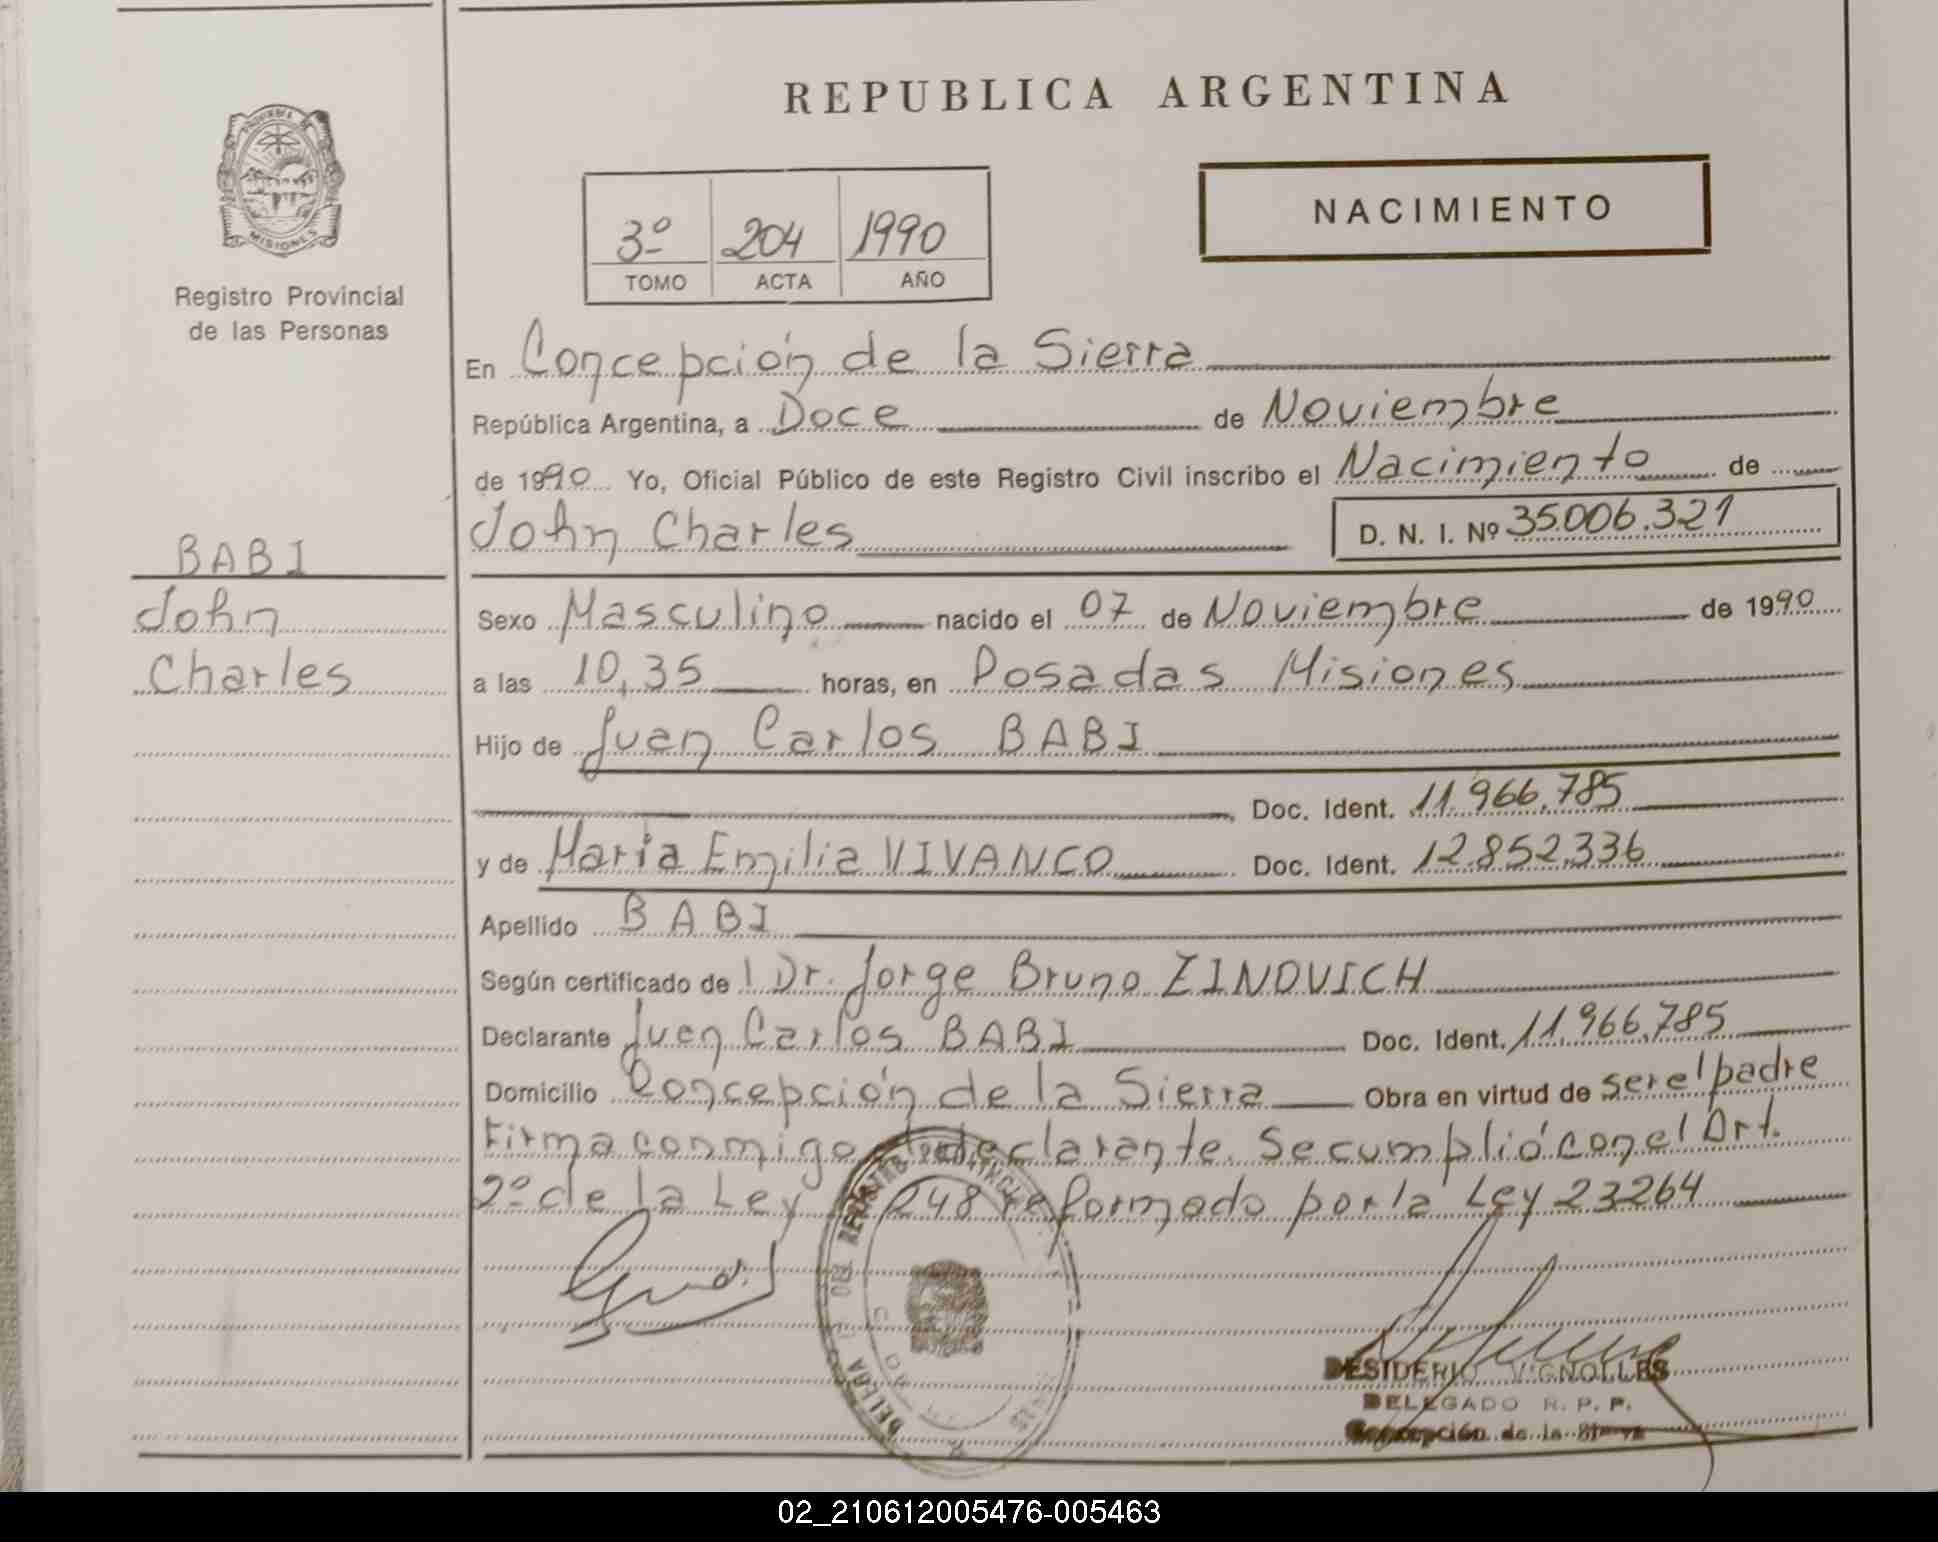 REPUBLICA ARGENTINA
NACIMIENTO
3º 204 1990
TOMO ACTA AÑO
MISIONES
Registro Provincial
de las Personas
BABI
John
Charles
En Concepción de la Sierra
República Argentina, a Doce de Noviembre
de 1990 Yo, Oficial Público de este Registro Civil inscribo el Nacimiento de
John Charles D. N. I. Nº 35.006.321
Sexo Masculino nacido el 07 de Noviembre de 1990
a las 10,35 horas, en Posadas Misiones
Hijo de Juan Carlos BABI
Doc. Ident. 11.966.785
y de Maria Emilia VIVANCO Doc. Ident. 12.852.336
Apellido BABI
Según certificado de l Dr. Jorge Bruno ZINOVICH
Declarante Juan Carlos BABI Doc. Ident. 11.966.785
Domicilio Concepción de la Sierra Obra en virtud de ser el padre
Firma conmigo el declarante. Se cumplió con el Art.
2º de la Ley 248 reformado por la Ley 23264
DESIDERIO VIGNOLLES
DELEGADO R. P. P.
Concepción de la Sierra
02_210612005476-005463